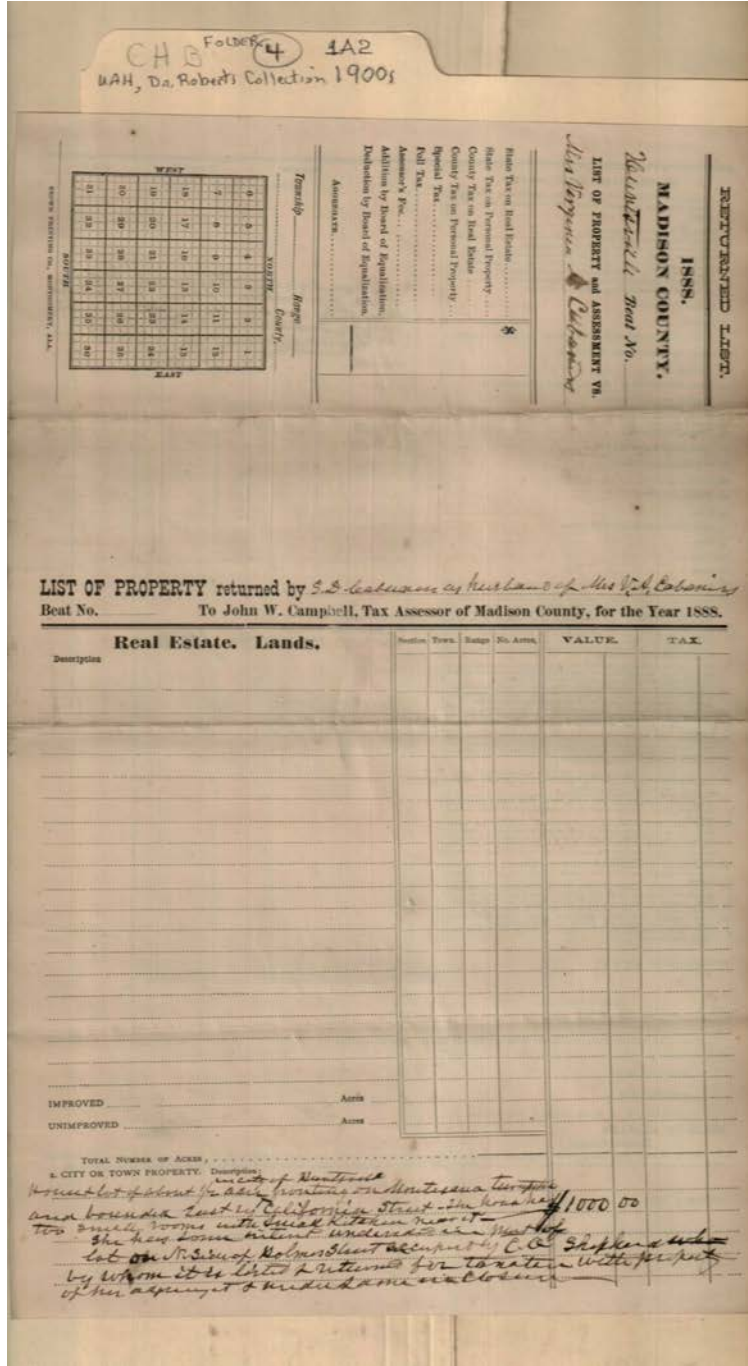 CHB FOLDER 4 1A2
UAH, Dr. Roberts Collection 1900s
RETURNED LIST.
1888.
MADISON COUNTY.
Huntsville Beat No.
LIST OF PROPERTY and ASSESSMENT VS.
Mrs Virginia Cabaniss
State Tax on Real Estate
State Tax on Personal Property
County Tax on Real Estate
County Tax on Personal Property
Special Tax
Poll Tax
Assessor's Fee
Addition by Board of Equalization
Deduction by Board of Equalization
AGGREGATE
Township Range
County.
NORTH
WEST
6 5 4 3 2 1
7 8 9 10 11 12
18 17 16 15 14 13
19 20 21 22 23 24
30 29 28 27 26 25
31 32 33 34 35 36
EAST
SOUTH
BROWN PRINTING CO., MONTGOMERY, ALA.
LIST OF PROPERTY returned by S. D. Cabaniss as husband of Mrs V. A. Cabaniss
Beat No. To John W. Campbell, Tax Assessor of Madison County, for the Year 1888.
Real Estate. Lands. Section Town. Range No. Acres, VALUE. TAX.
Description
IMPROVED Acres
UNIMPROVED Acres
TOTAL NUMBER OF ACRES,
2. CITY OR TOWN PROPERTY. Description;
in city of Huntsville
House & lot of about acre fronting on Montesana turnpike
and bounded East by California Street - The house has $1000 00
two small rooms with small kitchen near it -
She has some interest undivided in part of
lot on N. Side of Holmes Street occupied by C. C. Shepherd who
by whom it is listed & returned for taxation with property
of her adjoining it & under same inclosure